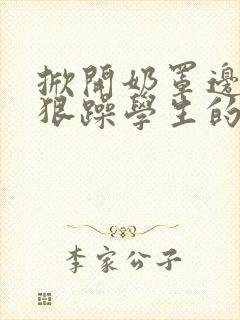 掀開奶罩邊
狠躁學生的
李家公子